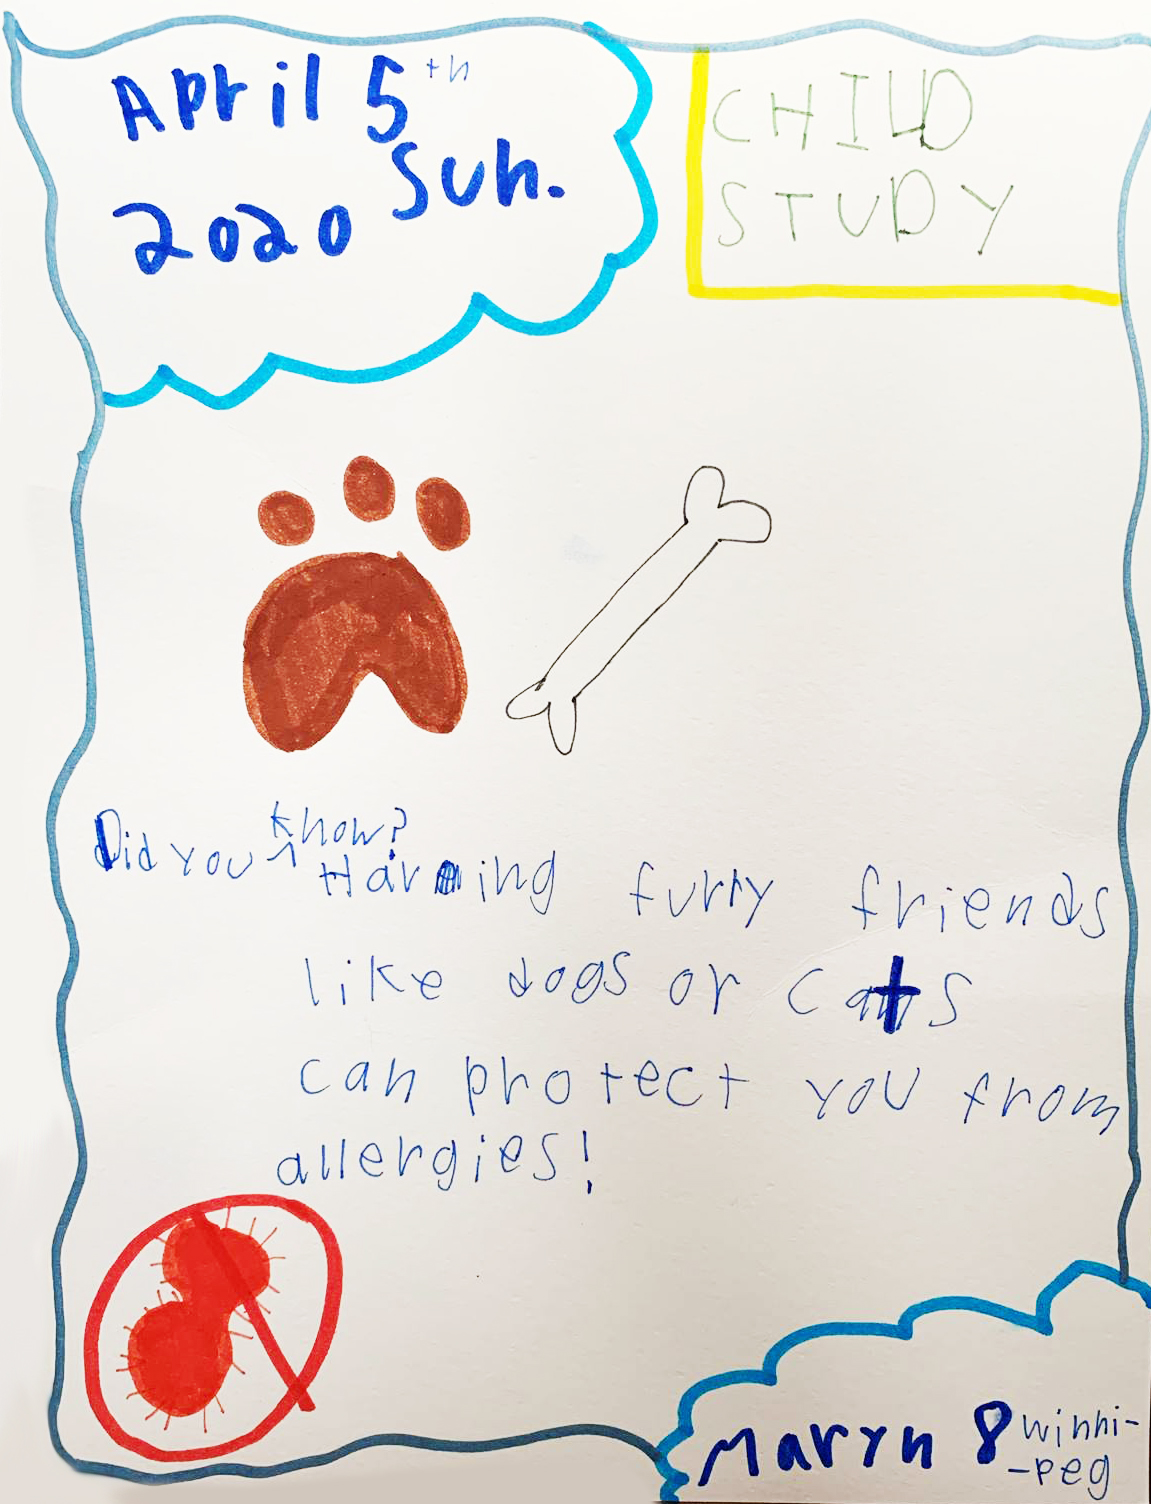 April 5th
Sun.
2020
CHILD
STUDY
Did you know?
Having furry friends
like dogs or cats
can protect you from
allergies!
Maryn 8 winni-
-peg